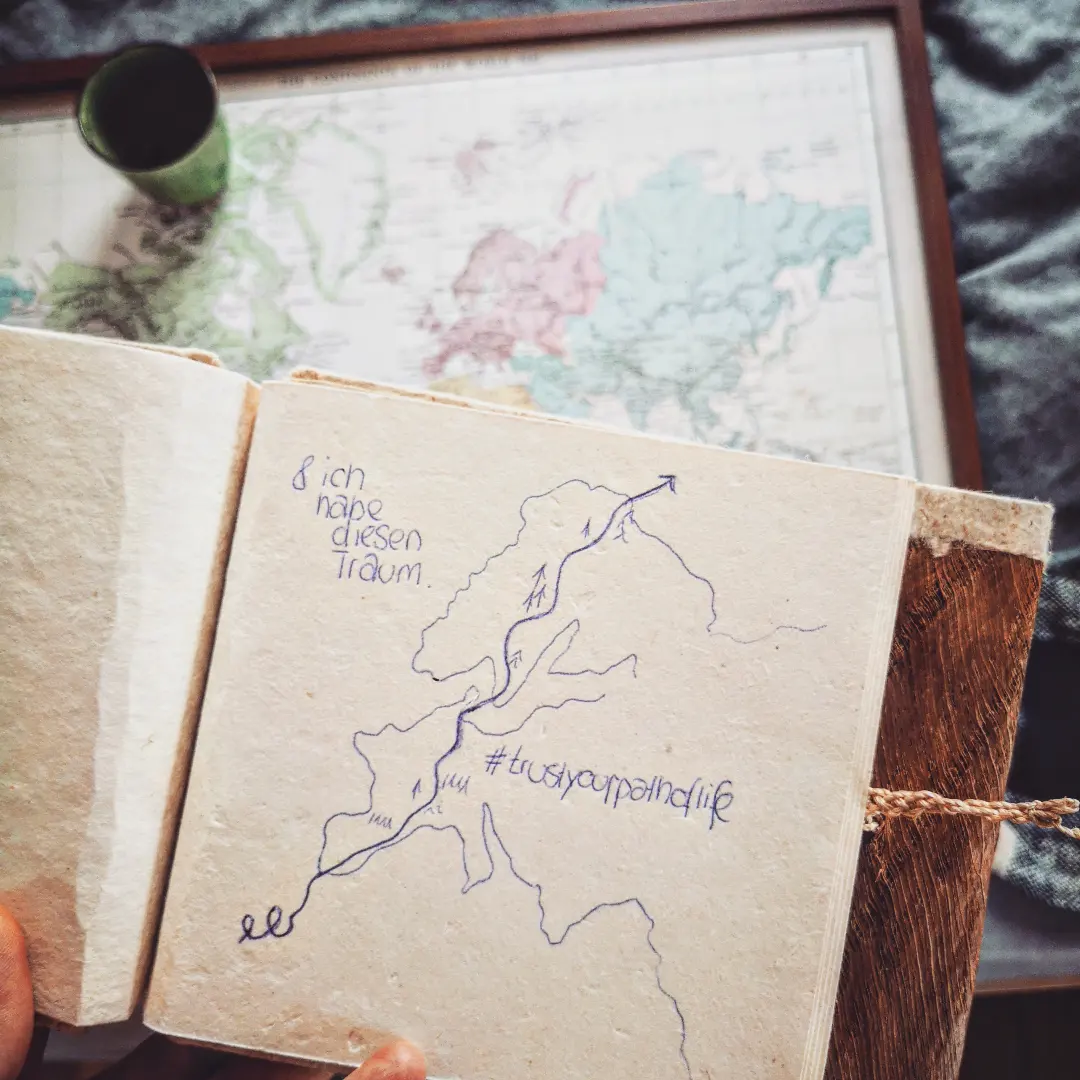 & ich
habe
diesen
Traum.
#trustyourpathoflife